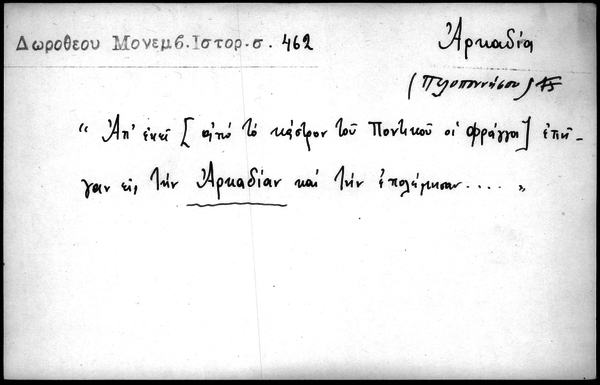 Δωροθεου Μονεμβ.Ιστορ.σ. 462
Ἀρκαδία
(Πελοποννήσου)
“ Ἀπ' ἐκεῖ [ ἀπό τὸ κάστρον τοῦ Ποντικοῦ οἱ φράγγοι] ἐπῆ-
γαν εἰς τὴν Ἀρκαδίαν καὶ τὴν ἐπολέμησαν.... „